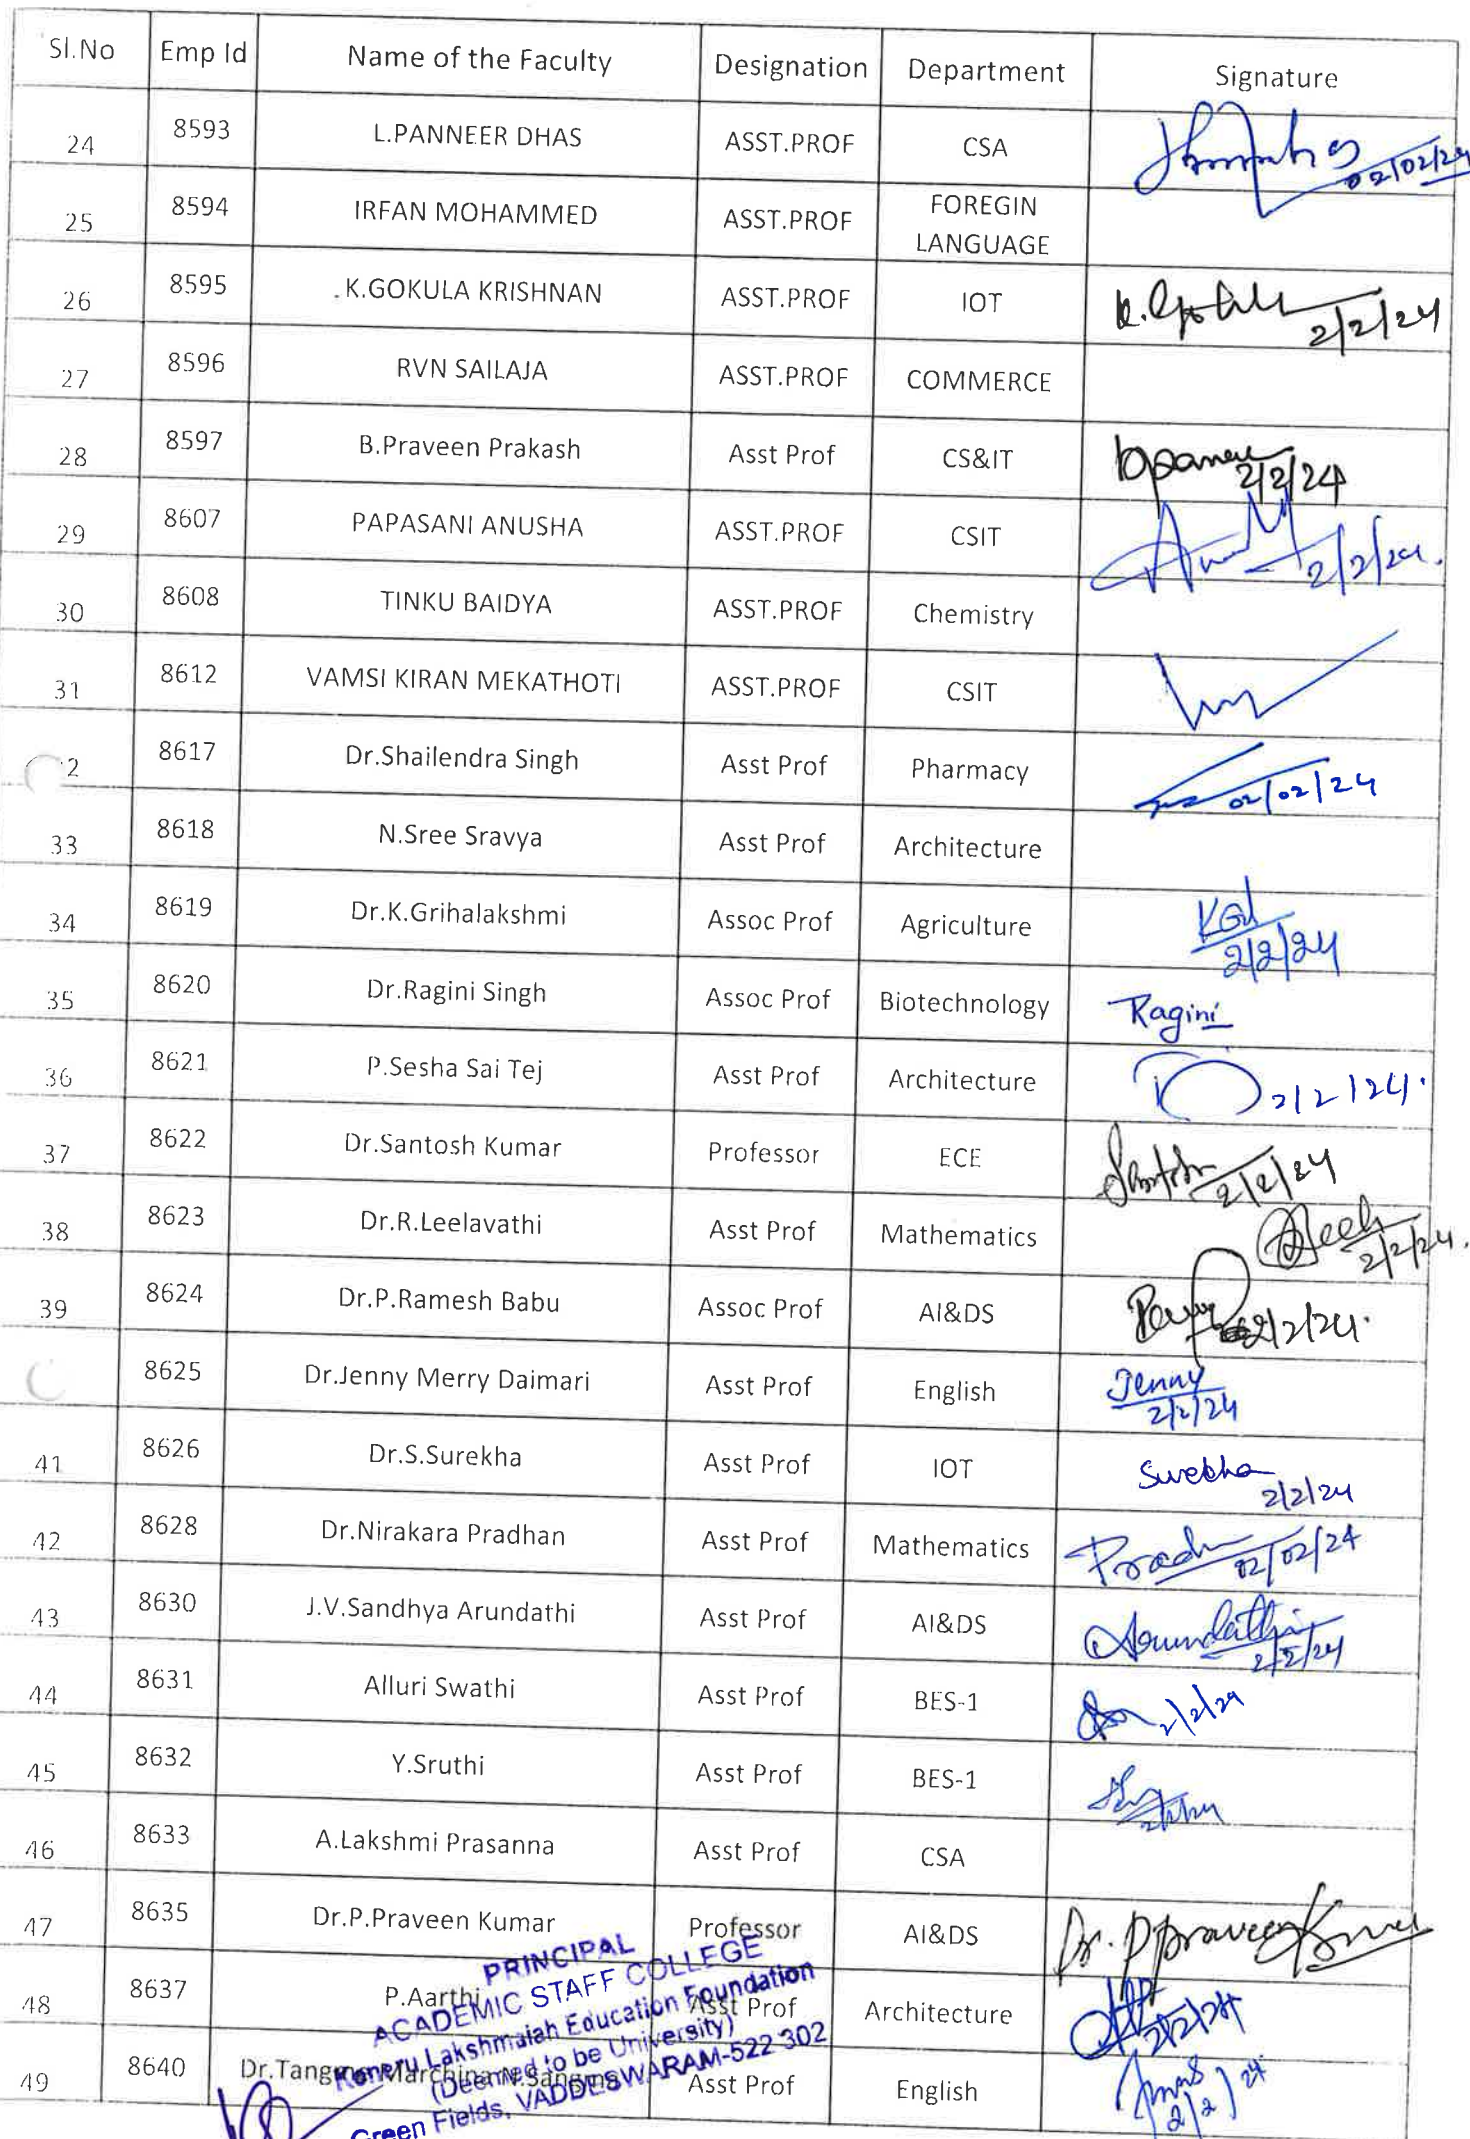 Sl.No Emp Id Name of the Faculty Designation Department Signature
24 8593 L.PANNEER DHAS ASST.PROF CSA 02/02/24
25 8594 IRFAN MOHAMMED ASST.PROF FOREGIN
LANGUAGE
26 8595 .K.GOKULA KRISHNAN ASST.PROF IOT 2/2/24
27 8596 RVN SAILAJA ASST.PROF COMMERCE
28 8597 B.Praveen Prakash Asst Prof CS&IT 2/2/24
29 8607 PAPASANI ANUSHA ASST.PROF CSIT 2/2/24.
30 8608 TINKU BAIDYA ASST.PROF Chemistry
31 8612 VAMSI KIRAN MEKATHOTI ASST.PROF CSIT
2 8617 Dr.Shailendra Singh Asst Prof Pharmacy 02/02/24
33 8618 N.Sree Sravya Asst Prof Architecture
34 8619 Dr.K.Grihalakshmi Assoc Prof Agriculture 2/2/24
35 8620 Dr.Ragini Singh Assoc Prof Biotechnology Ragini
36 8621 P.Sesha Sai Tej Asst Prof Architecture 2/2/24.
37 8622 Dr.Santosh Kumar Professor ECE 2/2/24
38 8623 Dr.R.Leelavathi Asst Prof Mathematics 2/2/24.
39 8624 Dr.P.Ramesh Babu Assoc Prof AI&DS 2/2/24.
8625 Dr.Jenny Merry Daimari Asst Prof English Jenny
2/2/24
41 8626 Dr.S.Surekha Asst Prof IOT Surekha
2/2/24
42 8628 Dr.Nirakara Pradhan Asst Prof Mathematics 02/02/24
43 8630 J.V.Sandhya Arundathi Asst Prof AI&DS Arundathi
2/2/24
44 8631 Alluri Swathi Asst Prof BES-1 2/2/24
45 8632 Y.Sruthi Asst Prof BES-1
46 8633 A.Lakshmi Prasanna Asst Prof CSA
47 8635 Dr.P.Praveen Kumar Professor AI&DS Dr. P Praveen Kumar
48 8637 P.Aarthi Asst Prof Architecture 2/2/24
49 8640 Dr.Tangmen Marchina N.Sangma Asst Prof English 2/2/24
PRINCIPAL
ACADEMIC STAFF COLLEGE
Koneru Lakshmaiah Education Foundation
(Deemed to be University)
Green Fields, VADDESWARAM-522 302